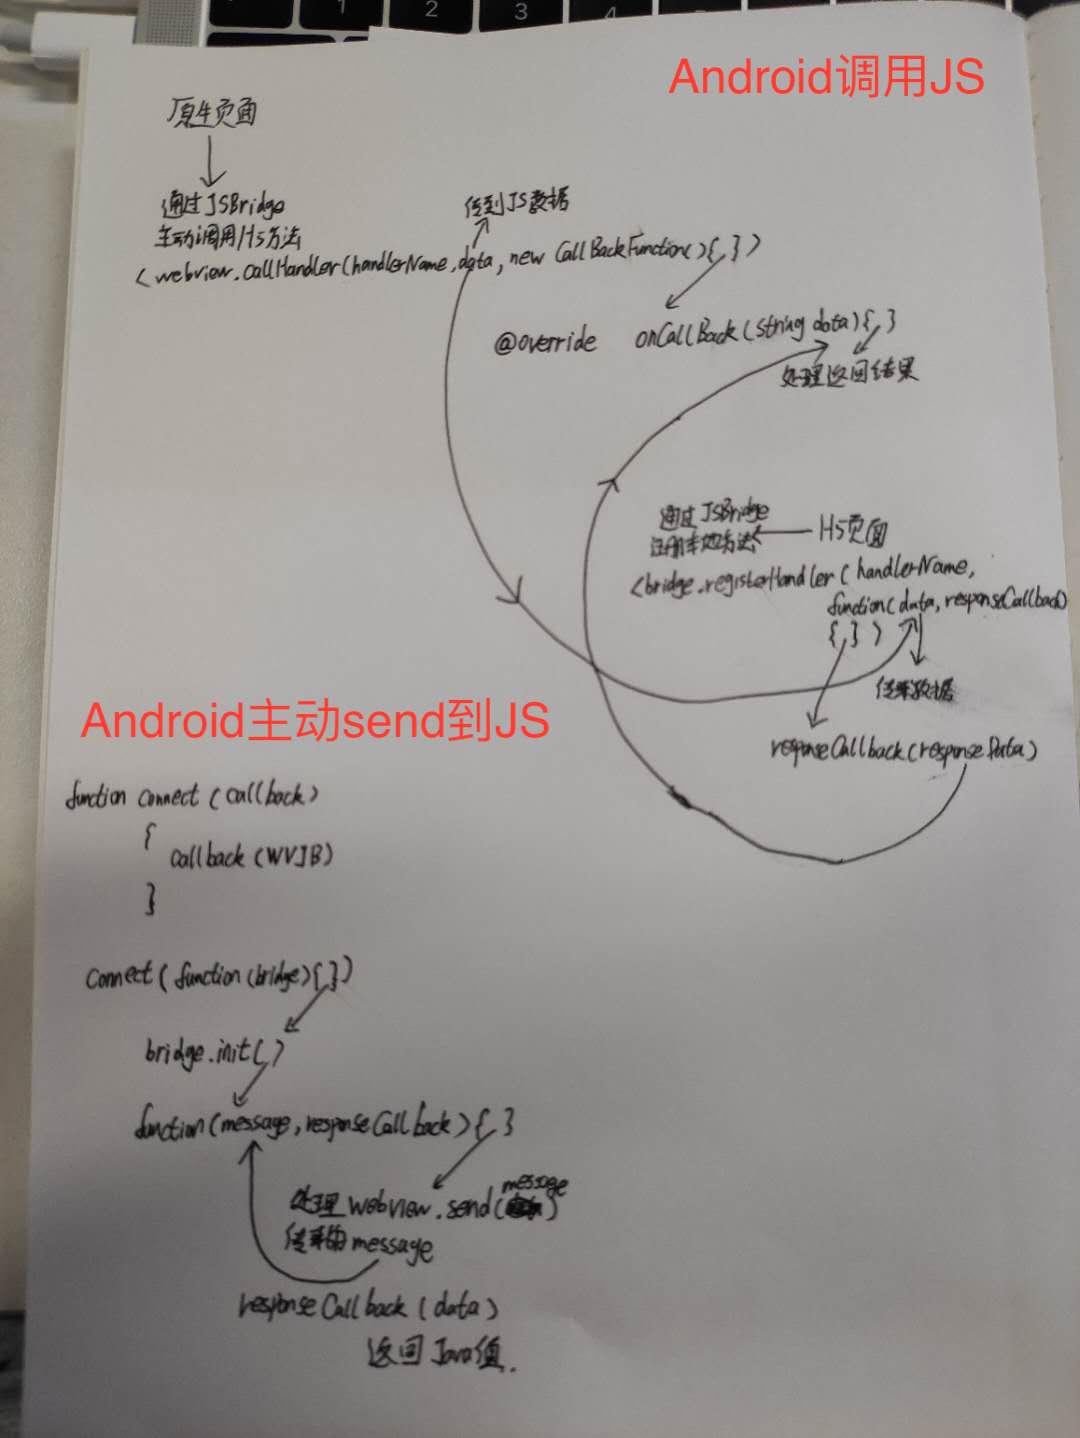 1 2 3 4
Android调用JS
原生页面
通过JSBridge
主动调用H5方法
传到JS数据
<webview.callHandler(handlerName,data,new CallBackFunction(){ })
@override onCallBack(String data){ }
处理返回结果
通过JSBridge
注册本地方法
H5页面
<bridge.registerHandler(handlerName,
function(data,responseCallback)
{ })
传来数据
responseCallback(responseData)
Android主动send到JS
function connect(callback)
{
callback(WVJB)
}
connect(function(bridge){ })
bridge.init( )
function(message,responseCallback){ }
message
处理webview.send( )
传来的message
responseCallback(data)
返回Java值.